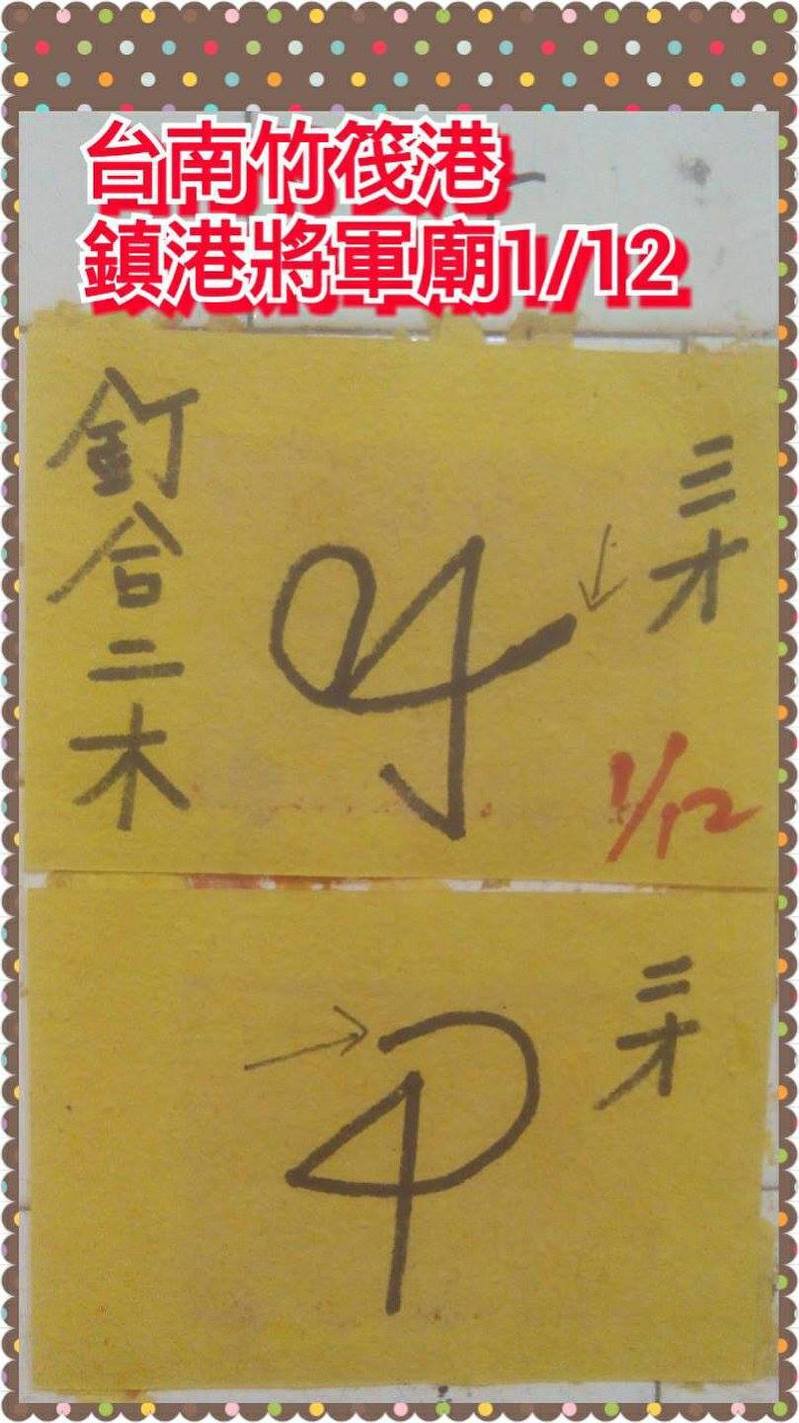 台南竹筏港
鎮港將軍廟1/12
三才
釘合二木
1/12
三才